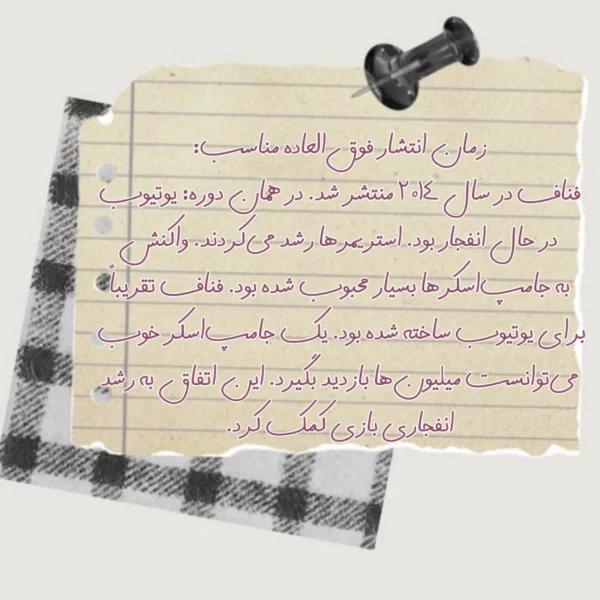 زمان انتشار فوق العاده مناسب:
فناف در سال ۲۰۱۴ منتشر شد. در همان دوره: یوتیوب
در حال انفجار بود. استریمرها رشد می‌کردند. واکنش
به جامپ‌اسکرها بسیار محبوب شده بود. فناف تقریباً
برای یوتیوب ساخته شده بود. یک جامپ‌اسکر خوب
می‌توانست میلیون‌ها بازدید بگیرد. این اتفاق به رشد
انفجاری بازی کمک کرد.